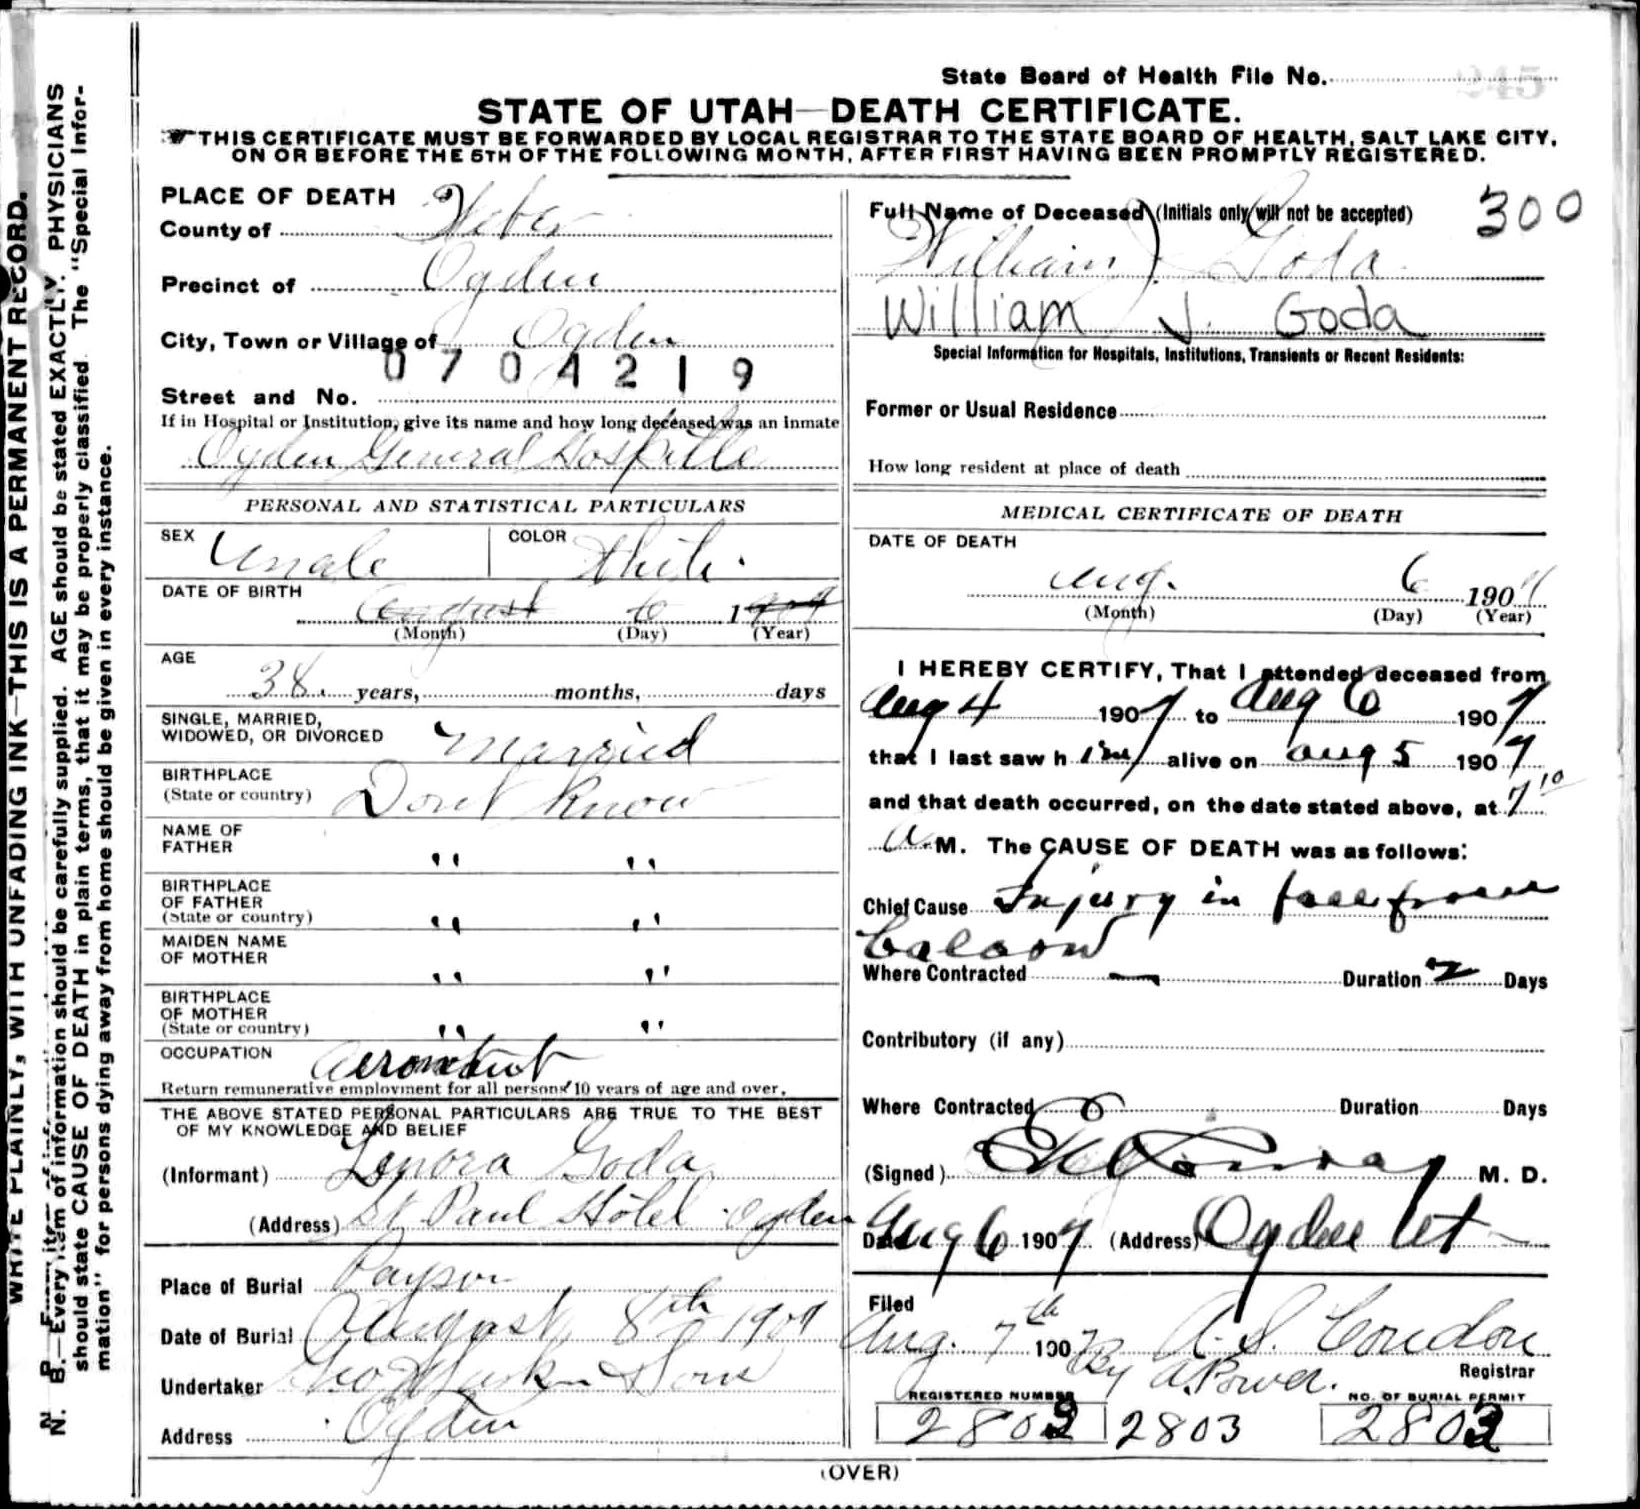 State Board of Health File No. 245
STATE OF UTAH—DEATH CERTIFICATE.
THIS CERTIFICATE MUST BE FORWARDED BY LOCAL REGISTRAR TO THE STATE BOARD OF HEALTH, SALT LAKE CITY,
ON OR BEFORE THE 5TH OF THE FOLLOWING MONTH, AFTER FIRST HAVING BEEN PROMPTLY REGISTERED.
WRITE PLAINLY, WITH UNFADING INK—THIS IS A PERMANENT RECORD.
N. B.—Every item of information should be carefully supplied. AGE should be stated EXACTLY. PHYSICIANS
should state CAUSE OF DEATH in plain terms, that it may be properly classified. The "Special Infor-
mation" for persons dying away from home should be given in every instance.
PLACE OF DEATH
County of Weber
Precinct of Ogden
City, Town or Village of Ogden
0704219
Street and No.
If in Hospital or Institution, give its name and how long deceased was an inmate
Ogden General Hospital
PERSONAL AND STATISTICAL PARTICULARS
SEX Male COLOR White
DATE OF BIRTH August 6 1909
(Month) (Day) (Year)
AGE
38 years, months, days
SINGLE, MARRIED,
WIDOWED, OR DIVORCED Married
BIRTHPLACE
(State or country) Dont Know
NAME OF
FATHER " "
BIRTHPLACE
OF FATHER
(State or country) " "
MAIDEN NAME
OF MOTHER " "
BIRTHPLACE
OF MOTHER
(State or country) " "
OCCUPATION Aeronaut
Return remunerative employment for all persons 10 years of age and over.
THE ABOVE STATED PERSONAL PARTICULARS ARE TRUE TO THE BEST
OF MY KNOWLEDGE AND BELIEF
(Informant) Lenora Goda
(Address) St Paul Hotel Ogden
Place of Burial Payson
Date of Burial August 8th 1909
Undertaker & Sons
Address Ogden
Full Name of Deceased (Initials only will not be accepted) 300
William J. Goda
William J. Goda
Special Information for Hospitals, Institutions, Transients or Recent Residents:
Former or Usual Residence
How long resident at place of death
MEDICAL CERTIFICATE OF DEATH
DATE OF DEATH
Aug. 6 190
(Month) (Day) (Year)
I HEREBY CERTIFY, That I attended deceased from
Aug 4 1909 to Aug 6 1909
that I last saw him alive on Aug 5 1909
and that death occurred, on the date stated above, at 7 10
A.M. The CAUSE OF DEATH was as follows:
Chief Cause Injury in fall from
Baloon
Where Contracted — Duration 2 Days
Contributory (if any)
Where Contracted Duration Days
(Signed) M. D.
Date Aug 6 1909 (Address) Ogden Ut
Filed
Aug. 7th 190 A. S. Condon
By A. Power. Registrar
REGISTERED NUMBER NO. OF BURIAL PERMIT
2803 2803 2803
(OVER)